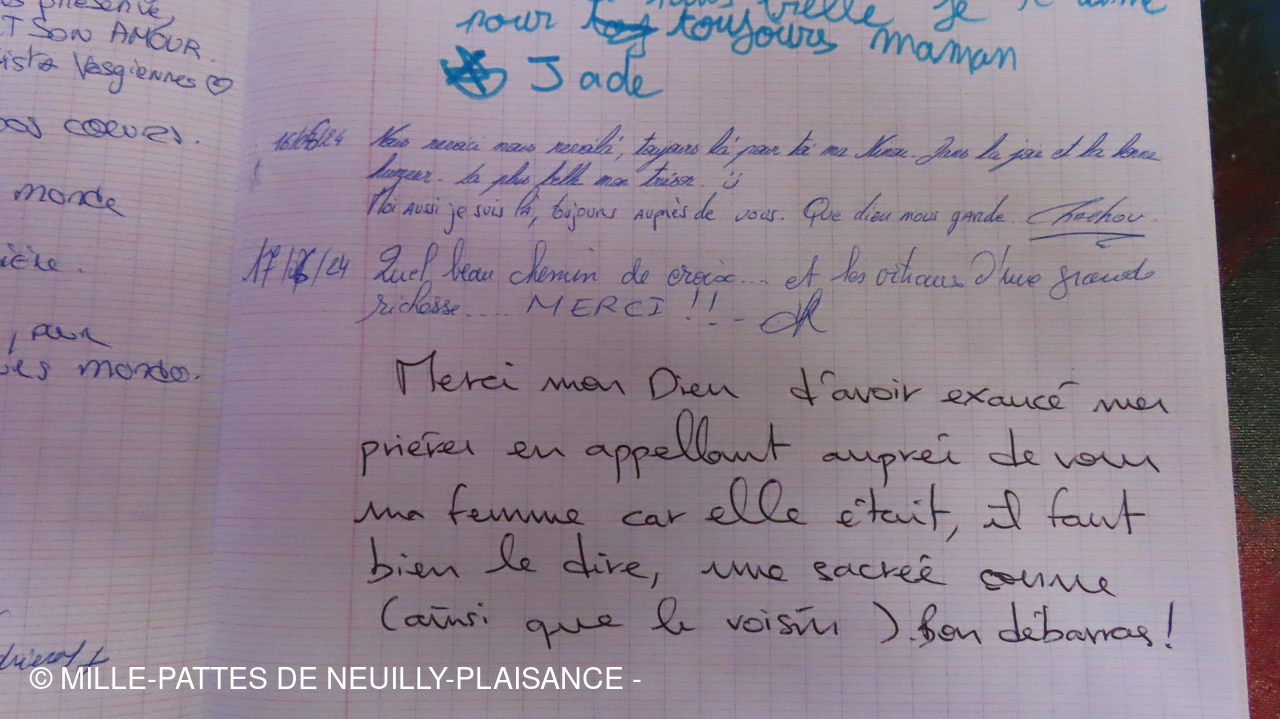 présence,
ET SON AMOUR.
Vosgiennes
nos coeurs.
monde
ière.
, pour
monde.
pour toujours maman
Jade
16/06/24 Nous revoici nous revoilà, toujours là pour toi ma Nina. Dans la joie et la bonne
humeur. La plus belle mon trésor.
Moi aussi je suis là, toujours auprès de vous. Que dieu nous garde.
17/06/24 Quel beau chemin de croix.... et les vitraux d'une grande
richesse.... MERCI !!-
Merci mon Dieu d'avoir exaucé mes
prières en appellant auprès de vous
ma femme car elle était, il faut
bien le dire, une sacrée conne
(ainsi que le voisin). Bon débarras!
© MILLE-PATTES DE NEUILLY-PLAISANCE -